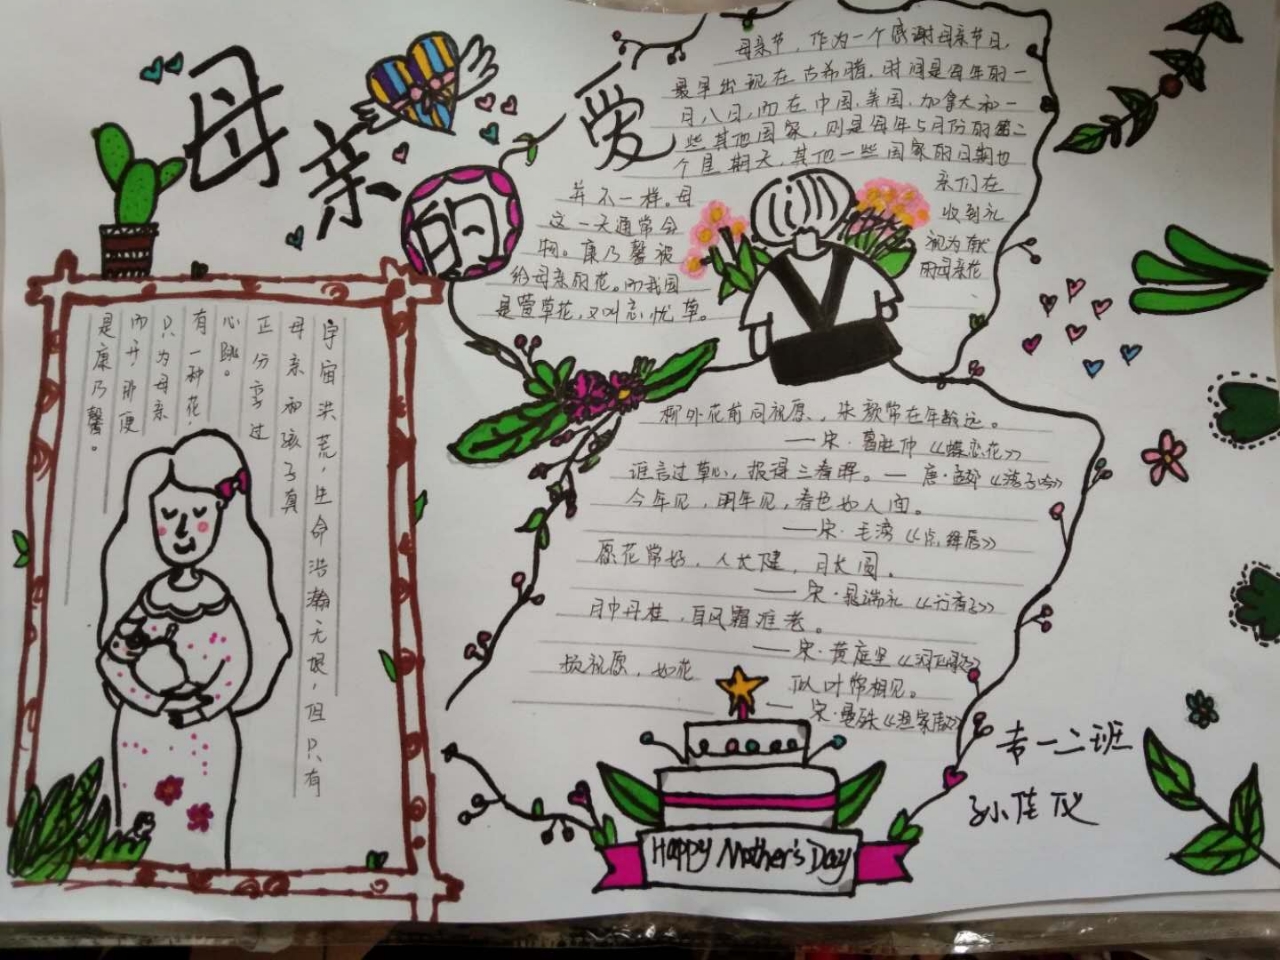 母亲的爱
母亲节，作为一个感谢母亲节日，
最早出现在古希腊，时间是每年的一
月八日，而在中国、美国、加拿大和一
些其他国家，则是每年5月份的第二
个星期天，其他一些国家的日期也
并不一样。母亲们在
这一天通常会收到礼
物。康乃馨被视为献
给母亲的花。而我国的母亲花
是萱草花，又叫忘忧草。
宇宙洪荒，生命浩瀚无垠，但只有
母亲和孩子真
正分享过
心跳。
有一种花，
只为母亲
而开那便
是康乃馨。
柳外花前同祝愿，朱颜常在年龄远。
——宋·葛胜仲《蝶恋花》
谁言寸草心，报得三春晖。—唐·孟郊《游子吟》
今年见，明年见，春色如人面。
——宋·毛滂《点绛唇》
愿花常好，人长健，月长圆。
——宋·晁端礼《行香子》
月中丹桂，自风霜难老。
——宋·黄庭坚《洞仙歌》
祝愿，如花
似叶常相见。
—宋·晏殊《渔家傲》
Happy Mother's Day
一二班
孙佳仪